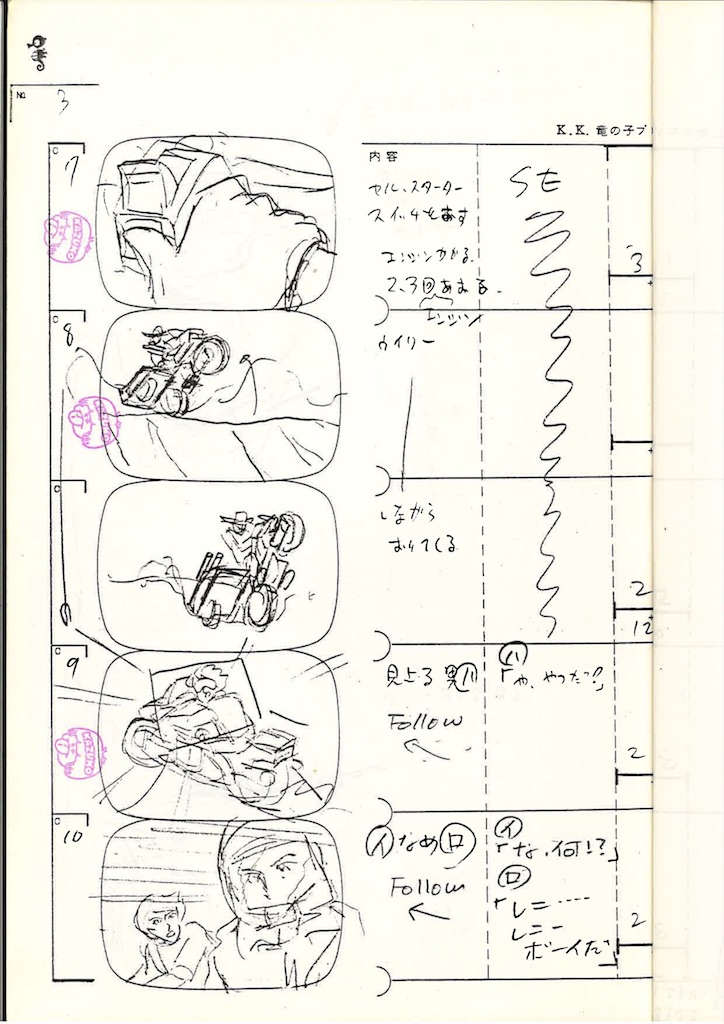 No. 3
K.K. 竜の子プ
内容
7
セル、スターター
スイッチを押す
エンジンかかる
2、3回あおる。
エンジン
SE
3
8
ウイリー
しながら
おりてくる
2
12
9
見上る男㋩
Follow
㋩
「や、やったっ!?」
2
10
㋑なめ㋺
Follow
㋑
「な、何!?」
㋺
「レニー‥‥
レニー
ボーイだ
2